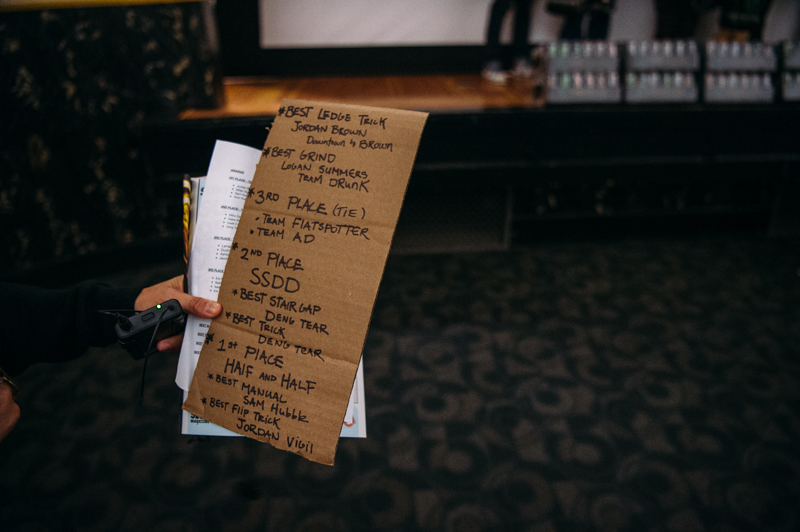 *BEST LEDGE TRICK
JORDAN BROWN
Downtown 4 BROWN
*BEST GRIND
LOGAN SUMMERS
TEAM DRUNK
*3RD PLACE (TIE)
• TEAM FLATSPOTTER
• TEAM AD
*2ND PLACE
SSDD
*BEST STAIR GAP
DENG TEAR
*BEST TRICK
DENG TEAR
*1st PLACE
HALF AND HALF
*BEST MANUAL
SAM Hubble
*BEST FLIP TRICK
JORDAN Vigil